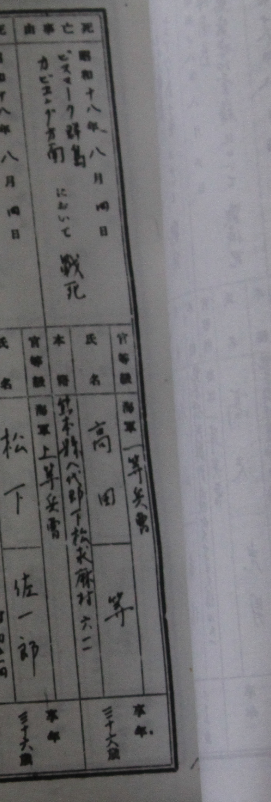 死亡事由
昭和十八年八月四日
ビスマーク群島
カビエング方面 において 戦死
官等級 海軍一等兵曹
氏名 高田 等
本籍 熊本縣八代郡下松求麻村六二
享年 三十六歳
死
昭和十八年八月四日
官等級 海軍上等兵曹
氏名 松下 佐一郎
享年 三十六歳